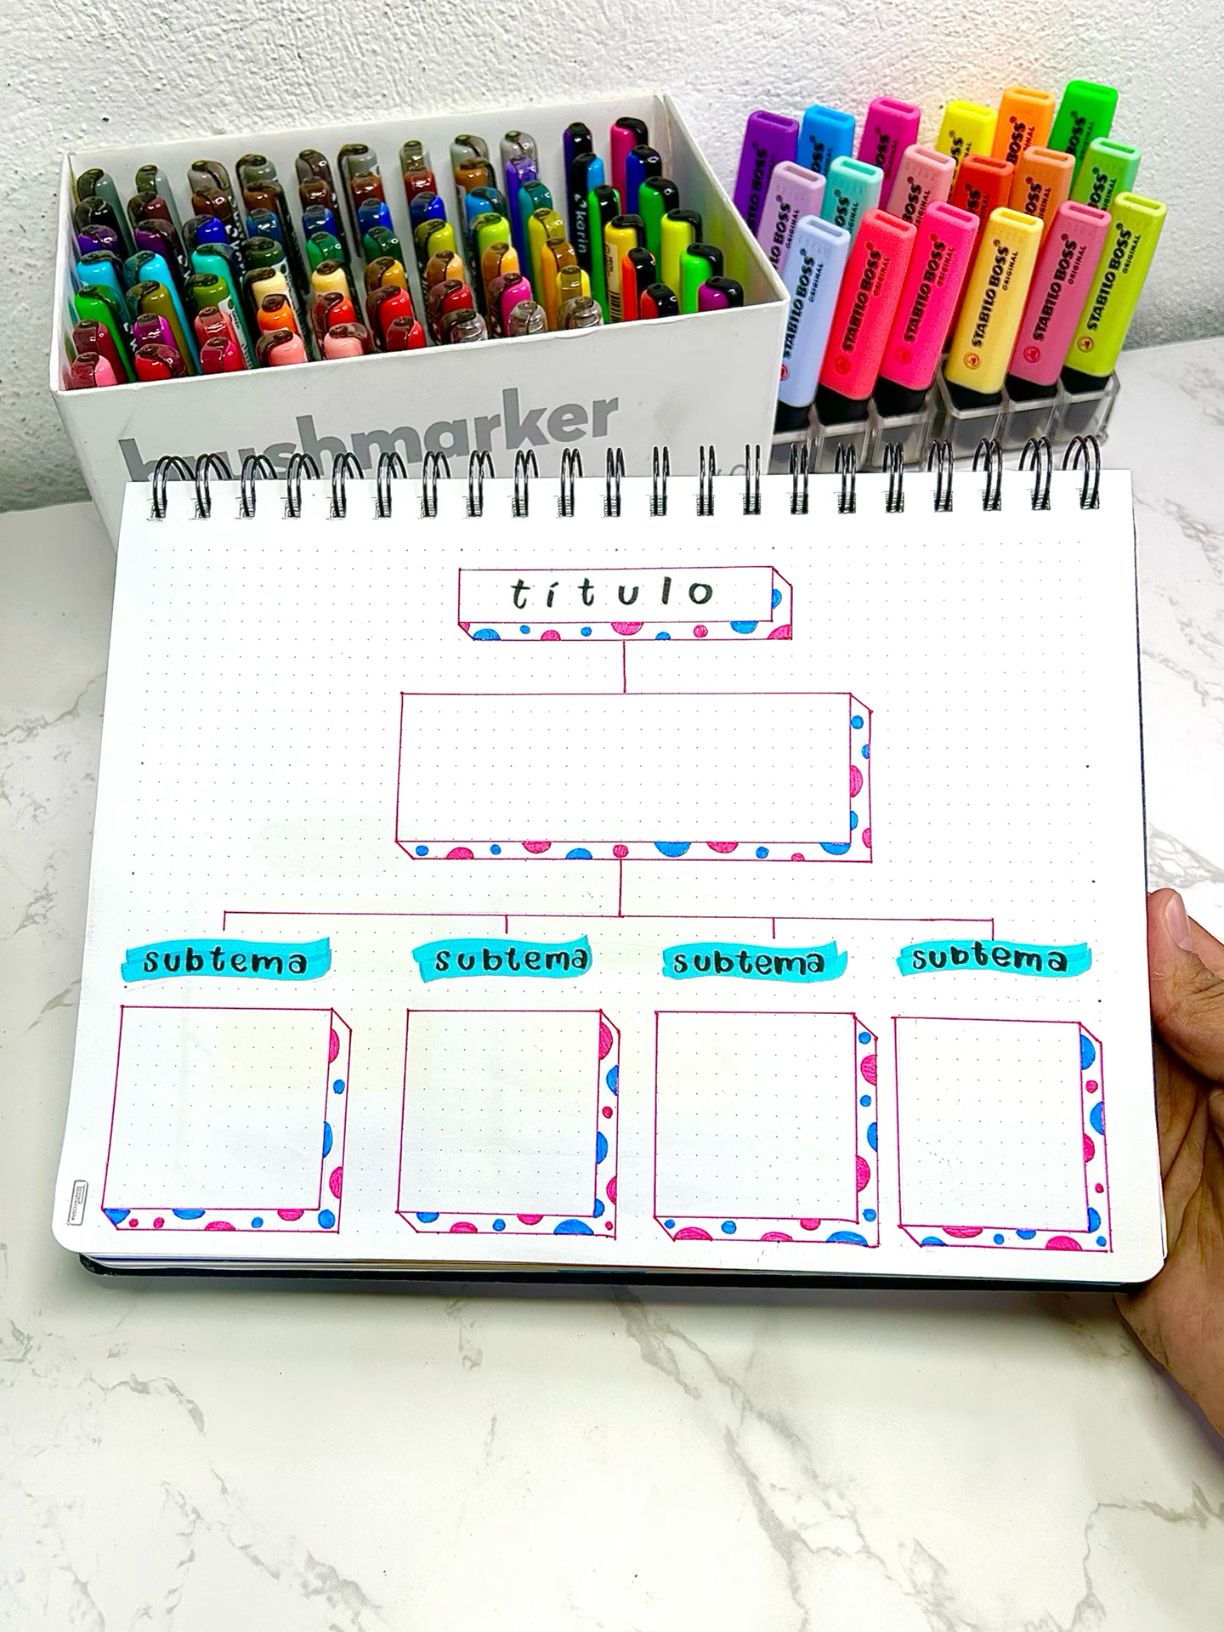 STABILO BOSS ORIGINAL
STABILO BOSS ORIGINAL
STABILO BOSS ORIGINAL
STABILO BOSS ORIGINAL
STABILO BOSS ORIGINAL
karin
brushmarker
título
subtema subtema subtema subtema